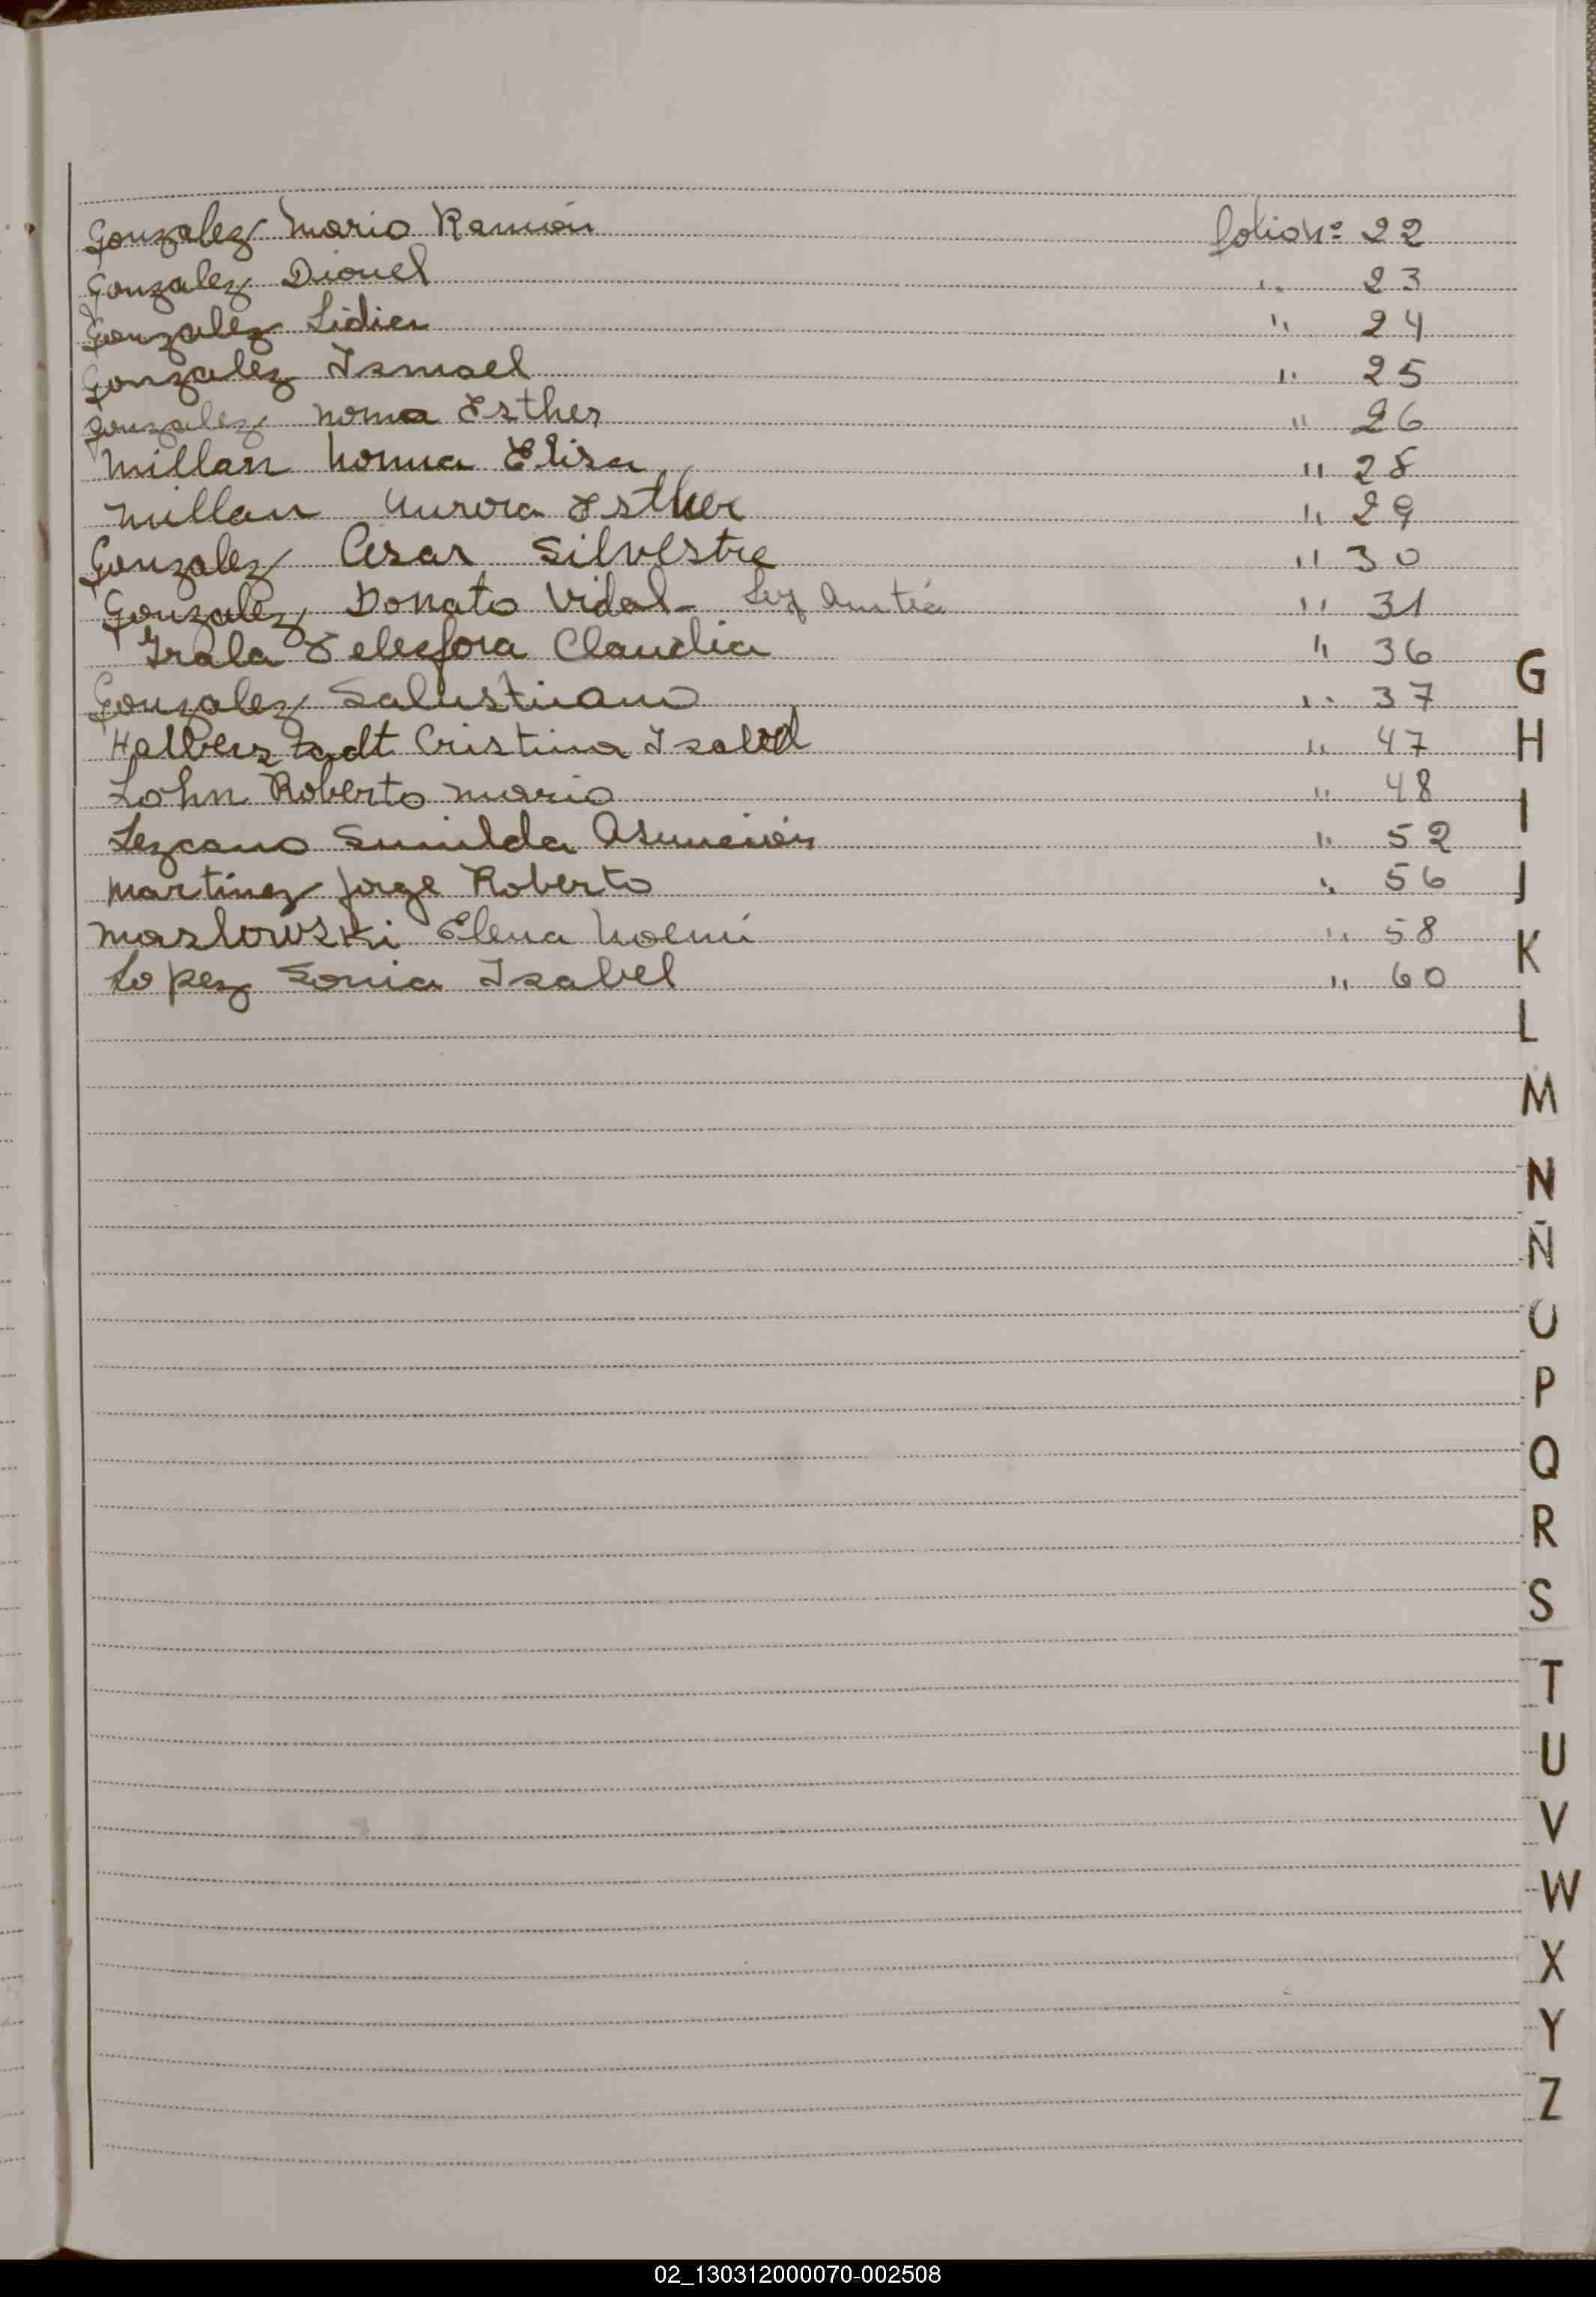 Gonzalez Mario Ramón folio nº 22
Gonzalez Dionel " 23
Gonzalez Lidia " 24
Gonzalez Ismael " 25
Gonzalez Noma Esther " 26
Millan Norma Elisa " 28
Millan Aurora Esther " 29
Gonzalez Cesar Silvestre " 30
Gonzalez Donato Vidal - " 31
Grala Telesfora Claudia " 36
Gonzalez Salustiano " 37
Halberstadt Cristina Isabel " 47
Lohn Roberto Mario " 48
Lezcano Sunilda Asunción " 52
Martínez Jorge Roberto " 56
Maslowski Elena Noemí " 58
Lopez Sonia Isabel " 60
G
H
I
J
K
L
M
N
Ñ
O
P
Q
R
S
T
U
V
W
X
Y
Z
02_130312000070-002508